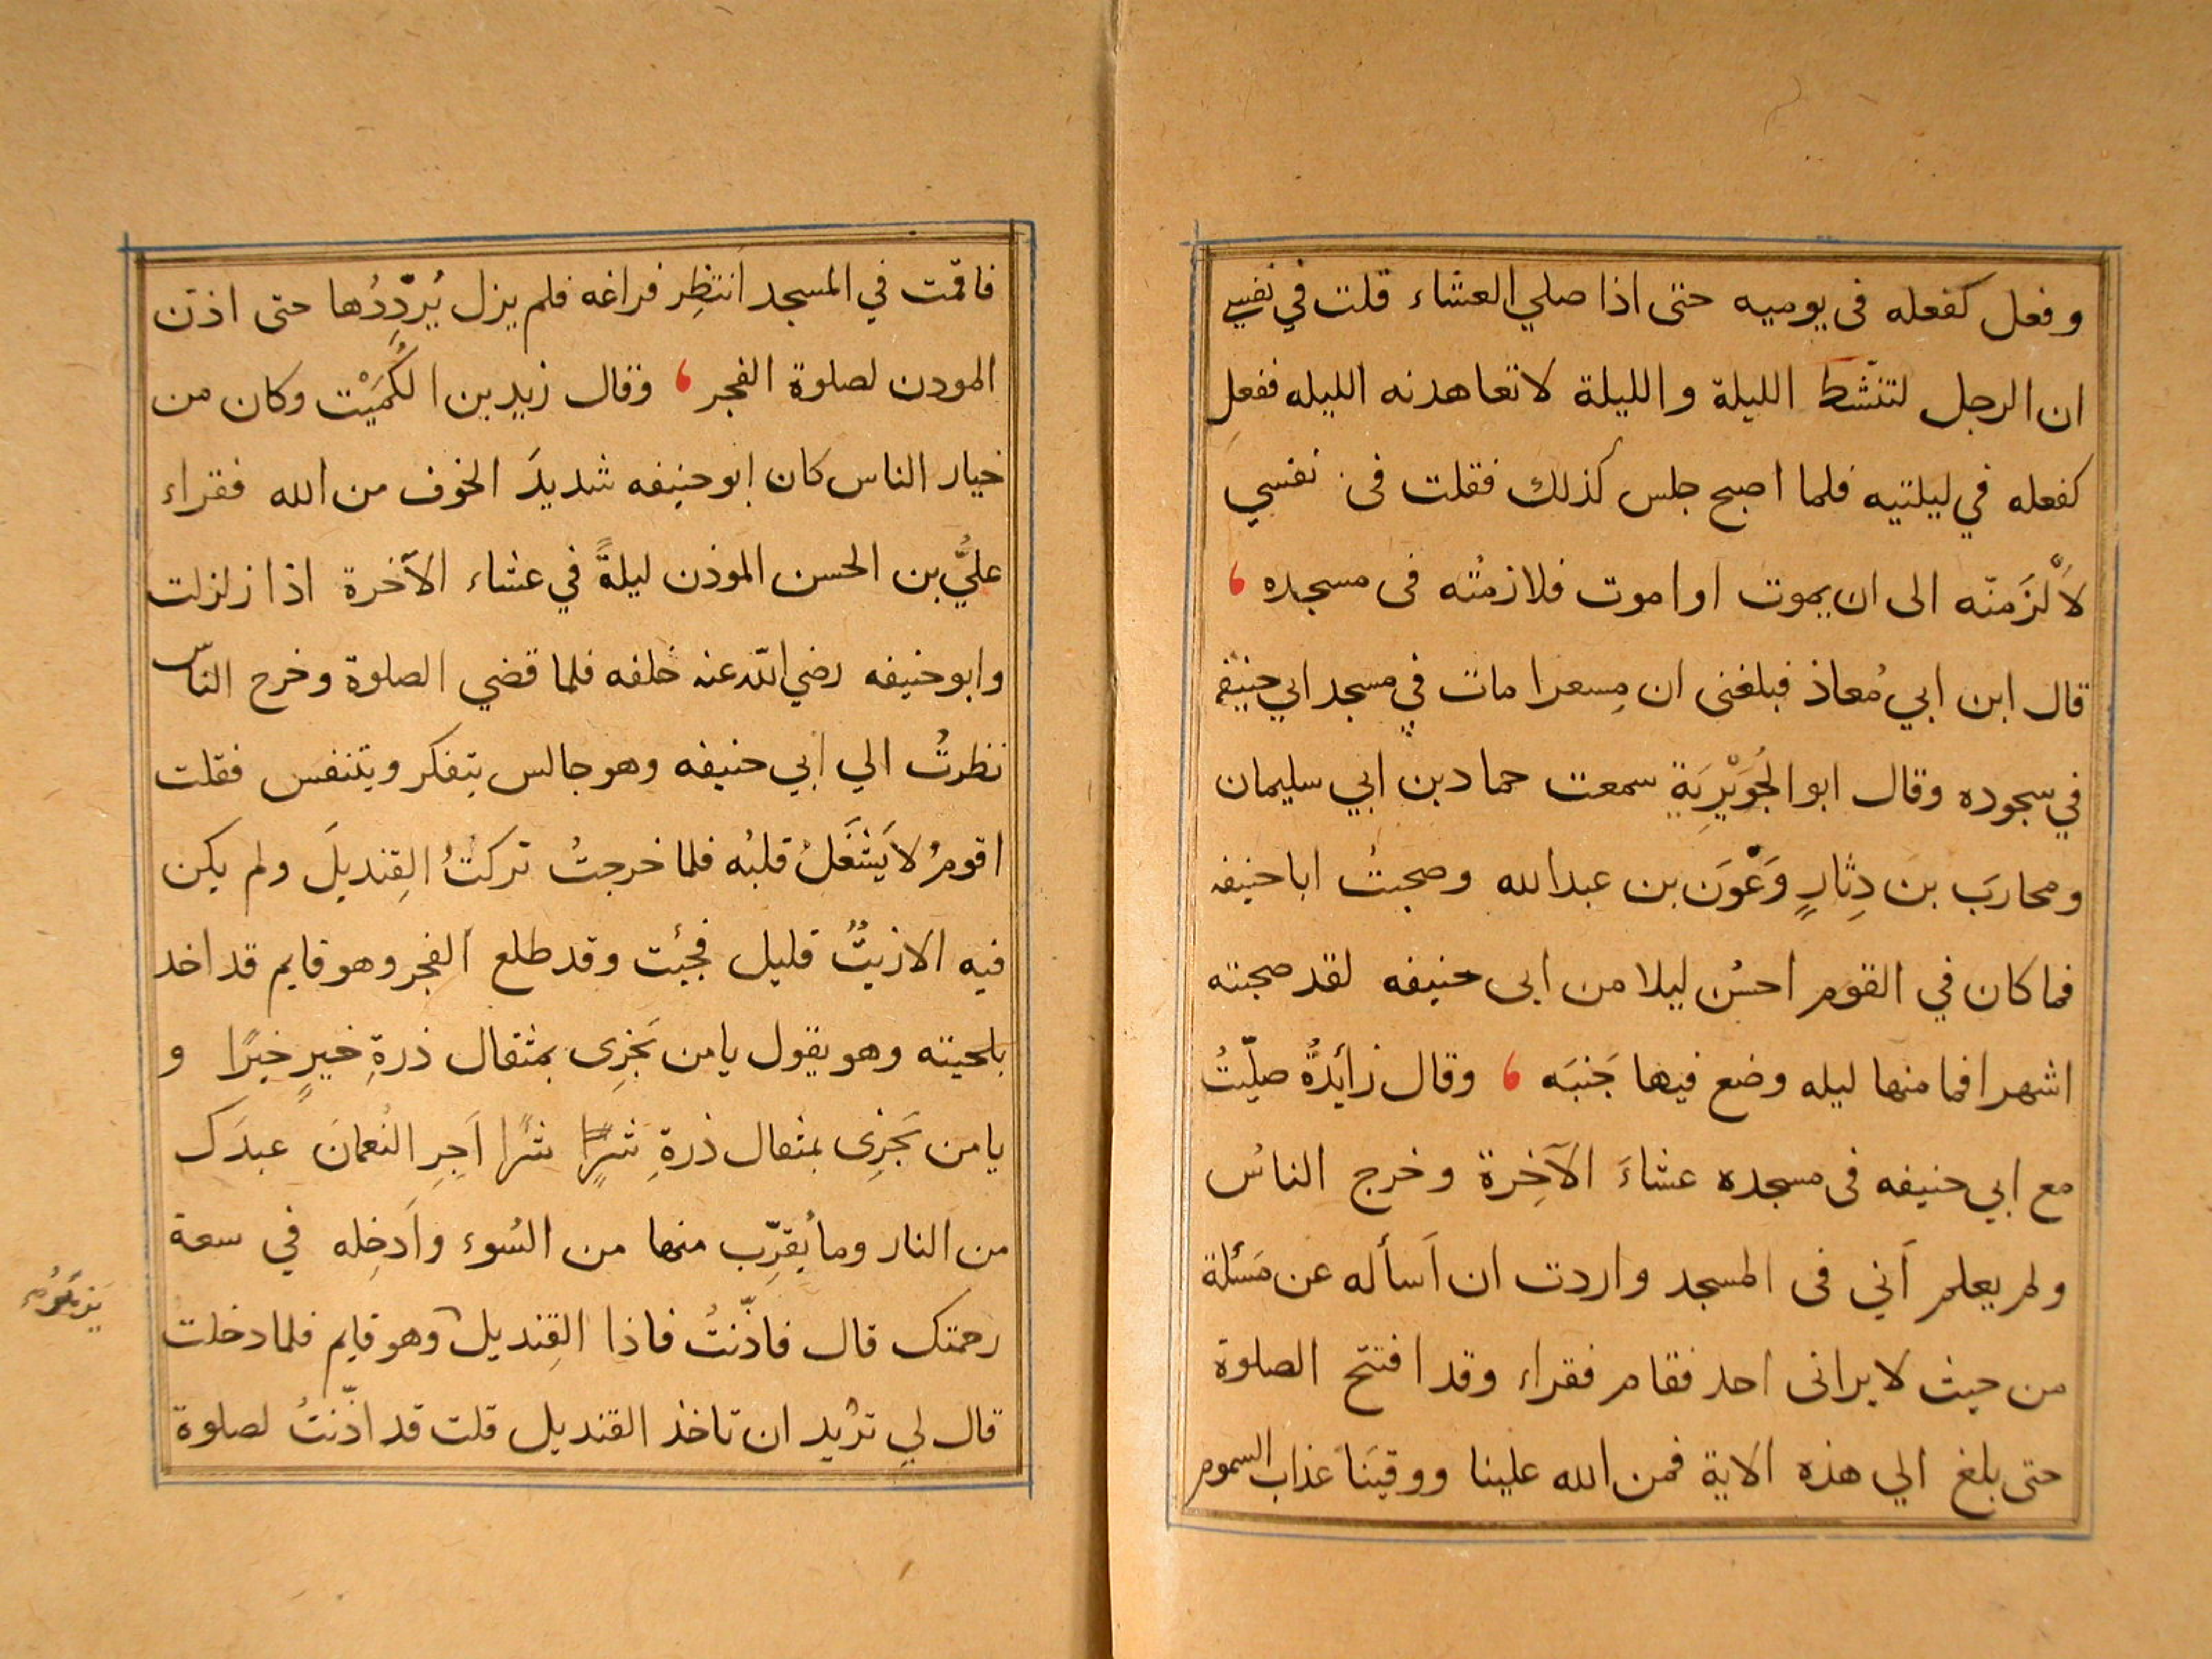 وفعل كفعله فى يوميه حتى اذا صلي العشاء قلت في نفسي
ان الرجل لتنشّط الليلة والليلة لاتعاهدنه الليله ففعل
كفعله في ليلتيه فلما اصبح جلس كذلك فقلت فى نفسي
لاَلْزَمنّه الى ان يموت او اموت فلازمتُه فى مسجده ،
قال ابن ابي مُعاذ فبلغنى ان مِسعرا مات في مسجد ابي حنيفه
في سجوده وقال ابو الجُوَيْرِيَة سمعت حماد بن ابي سليمان
ومحاربَ بن دِثارٍ وَعْوَن بن عبدالله وصحبتُ اباحنيفه
فما كان في القوم احسُن ليلا من ابى حنيفه لقد صحبته
اشهرا فما منها ليله وضع فيها جَنبَه ، وقال زائدةُ صلّيتُ
مع ابي حنيفه فى مسجده عشاءَ الآخِرة وخرج الناسُ
ولم يعلم اَني فى المسجد واردت ان اَسأله عن مَسئلة
من حيث لايرانى احد فقام فقراء وقد افتتح الصلوة
حتى بلغ الي هذه الاية فمن الله علينا ووقيَنَا عذاب السموم
فاقمت في المسجد اَنتظِر فراغه فلم يزل يُرِدِّدُها حتى اذن
المودن لصلوة الفجر ، وقال زيد بن الكُمَيْت وكان من
خيار الناس كان ابوحنيفه شديدَ الخوف من الله فقراء
عليُّ بن الحسن الموذن ليلةً في عشاء الآخرة اذا زلزلت
وابوحنيفه رضي الله عنه خلفه فلما قضي الصلوة وخرج الناس
نظرتُ الي ابي حنيفه وهو جالس يتفكر ويتنفس فقلت
اقومُ لاَيَشغَلُ قلبُه فلما خرجتُ تركتُ القِنديلَ ولم يكن
فيه الازيتٌ قليل فجئت وقد طلع الفجر وهو قايم قد اخد
بلحيته وهو يقول يامن يَجزِى بمثقال ذرةِ خيرٍ خيرًا و
يامن يَجزِى بمثقال ذرةِ شرٍّ شرًا اَجِرِ النُعمانَ عبدَك
من النار وما يُقرِّب منها من السُوء واَدخِله في سعة
رحمتك قال فاذّنتُ فاذا القِنديل وهو قايم فلما دخلت
قال لي تريد ان تاخذ القنديل قلت قد اذّنتُ لصلوة